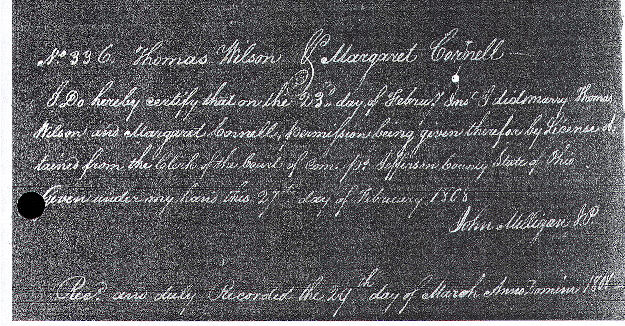 No 336. Thomas Wilson & Margaret Connell
I Do hereby certify that on the 23d day of Febru.y Inst I did marry Thomas
Wilson and Margaret Connell, Permission being given therefor by License ob
tained from the Clerk of the Court of Com. Pl. Jefferson County State of Ohio
Given under my hand this 27th day of February 1808
John Milligan J.P.
Rec.d and duly Recorded the 29th day of March Anno Domini